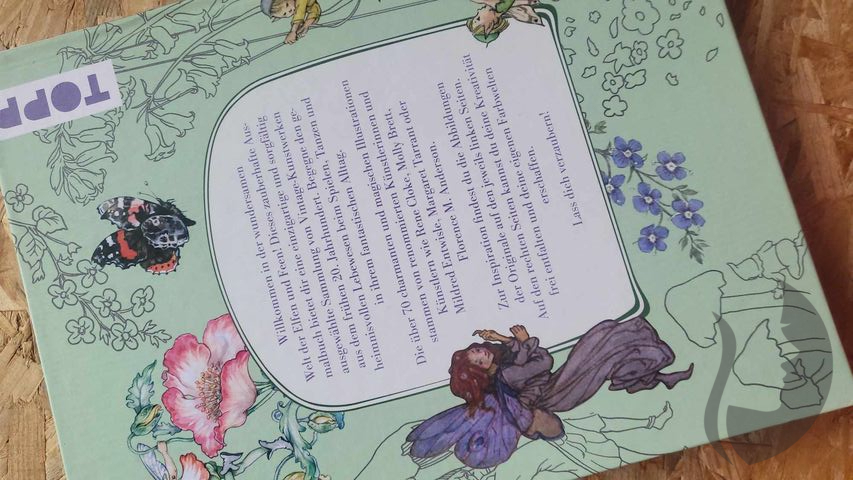 TOPP
Willkommen in der wundersamen
Welt der Elfen und Feen! Dieses zauberhafte Aus-
malbuch bietet dir eine einzigartige und sorgfältig
ausgewählte Sammlung von Vintage-Kunstwerken
aus dem frühen 20. Jahrhundert. Begegne den ge-
heimnisvollen Lebewesen beim Spielen, Tanzen und
in ihrem fantastischen Alltag.
Die über 70 charmanten und magischen Illustrationen
stammen von renommierten Künstlerinnen und
Künstlern wie Rene Cloke, Molly Brett,
Mildred Entwisle, Margaret Tarrant oder
Florence M. Anderson.
Zur Inspiration findest du die Abbildungen
der Originale auf den jeweils linken Seiten.
Auf den rechten Seiten kannst du deine Kreativität
frei entfalten und deine eigenen Farbwelten
erschaffen.
Lass dich verzaubern!